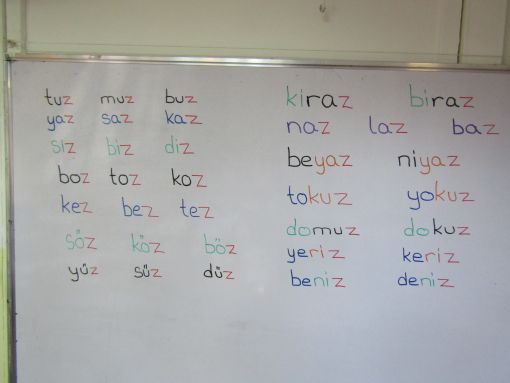 tuz muz buz
yaz saz kaz
sız biz diz
boz toz koz
kez bez tez
söz köz böz
yüz süz düz
kiraz biraz
naz laz baz
beyaz niyaz
tokuz yokuz
domuz dokuz
yeriz keriz
beniz deniz